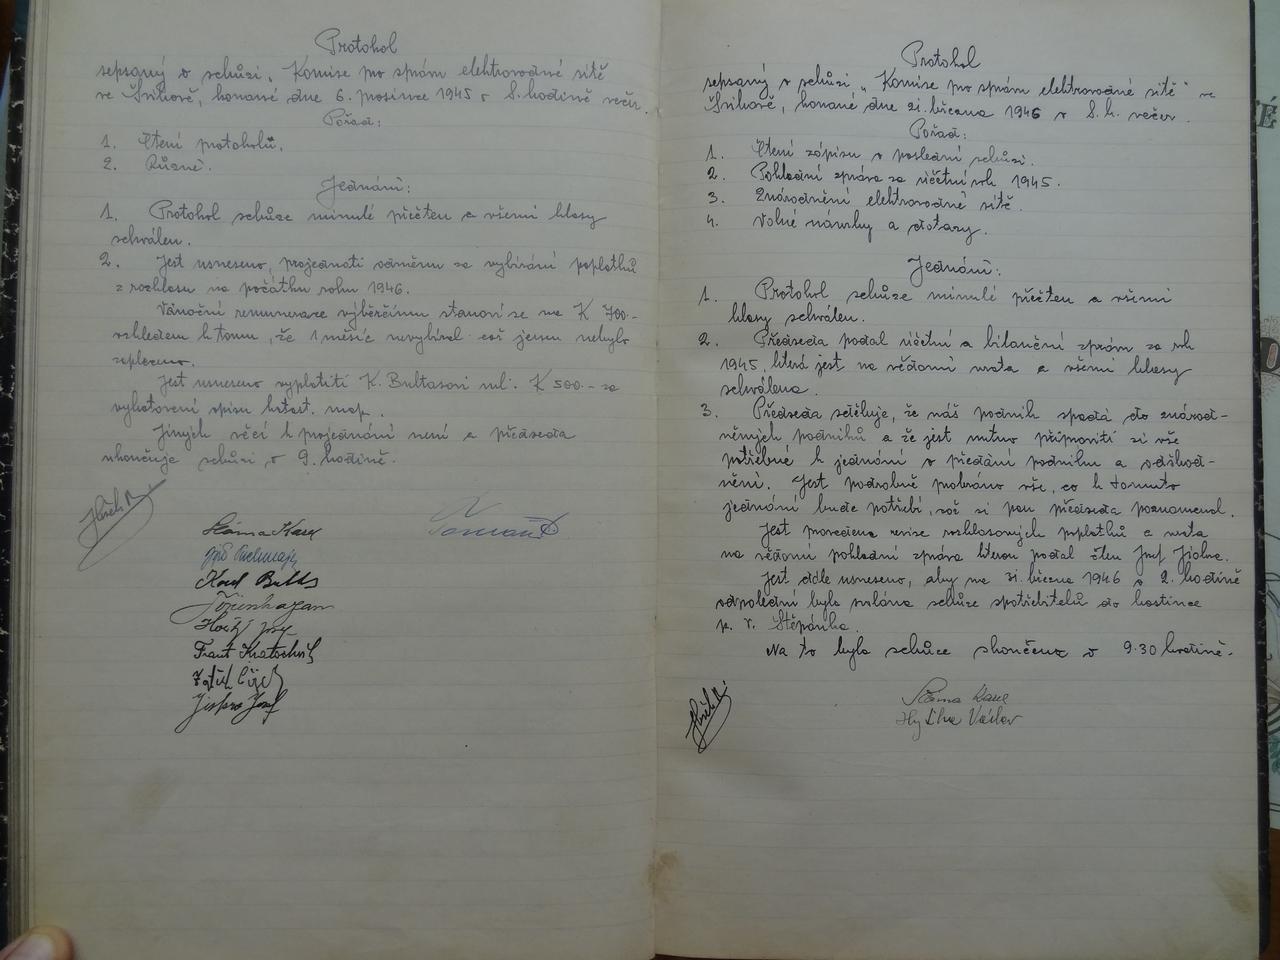 Protokol
sepsaný o schůzi „Komise pro správu elektrovodné sítě
ve Svihově, konané dne 6. prosince 1945 v 8. hodině večer.
Pořad:
1. Čtení protokolů.
2. Různé.
Jednání:
1. Protokol schůze minulé přečten a všemi hlasy
schválen.
2. Jest usneseno, projednati odměnu za vybírání poplatků
z rozhlasu na počátku roku 1946.
Vánoční remunerace výběrčímu stanoví se na K 700.-
vzhledem k tomu, že 1 měsíc nevybíral což jemu nebylo
zaplaceno.
Jest usneseno vyplatiti K. Bultasovi ml. K 500.- za
vyhotovení opisu katast. map.
Jiných věcí k projednání není a předseda
ukončuje schůzi v 9. hodině.
Sláma Karel
Karel Bultas
Frant Kratochvíl
Josef
Protokol
sepsaný o schůzi „Komise pro správu elektrovodné sítě" ve
Svihově, konané dne 21. března 1946 v 8. h. večer.
Pořad:
1. Čtení zápisu o poslední schůzi.
2. Pokladní zpráva za účetní rok 1945.
3. Znárodnění elektrovodné sítě.
4. Volné návrhy a dotazy.
Jednání:
1. Protokol schůze minulé přečten a všemi
hlasy schválen.
2. Předseda podal účetní a bilanční zprávu za rok
1945, která jest na vědomí vzata a všemi hlasy
schválena.
3. Předseda sděluje, že náš podnik spadá do národ-
něných podniků a že jest nutno připraviti si vše
potřebné k jednání o předání podniku a odškod-
nění. Jest podrobně probráno vše, co k tomuto
jednání bude potřebí, což si pan předseda poznamenal.
Jest provedena revise rozhlasových poplatků a vzata
na vědomí pokladní zpráva kterou podal člen Josef
Jest dále usneseno, aby na 31. března 1946 o 2. hodině
odpolední byla svolána schůze spotřebitelů do hostince
p. V. Štěpánka.
Na to byla schůze skončena v 9.30 hodině.
Sláma Karel
Václav